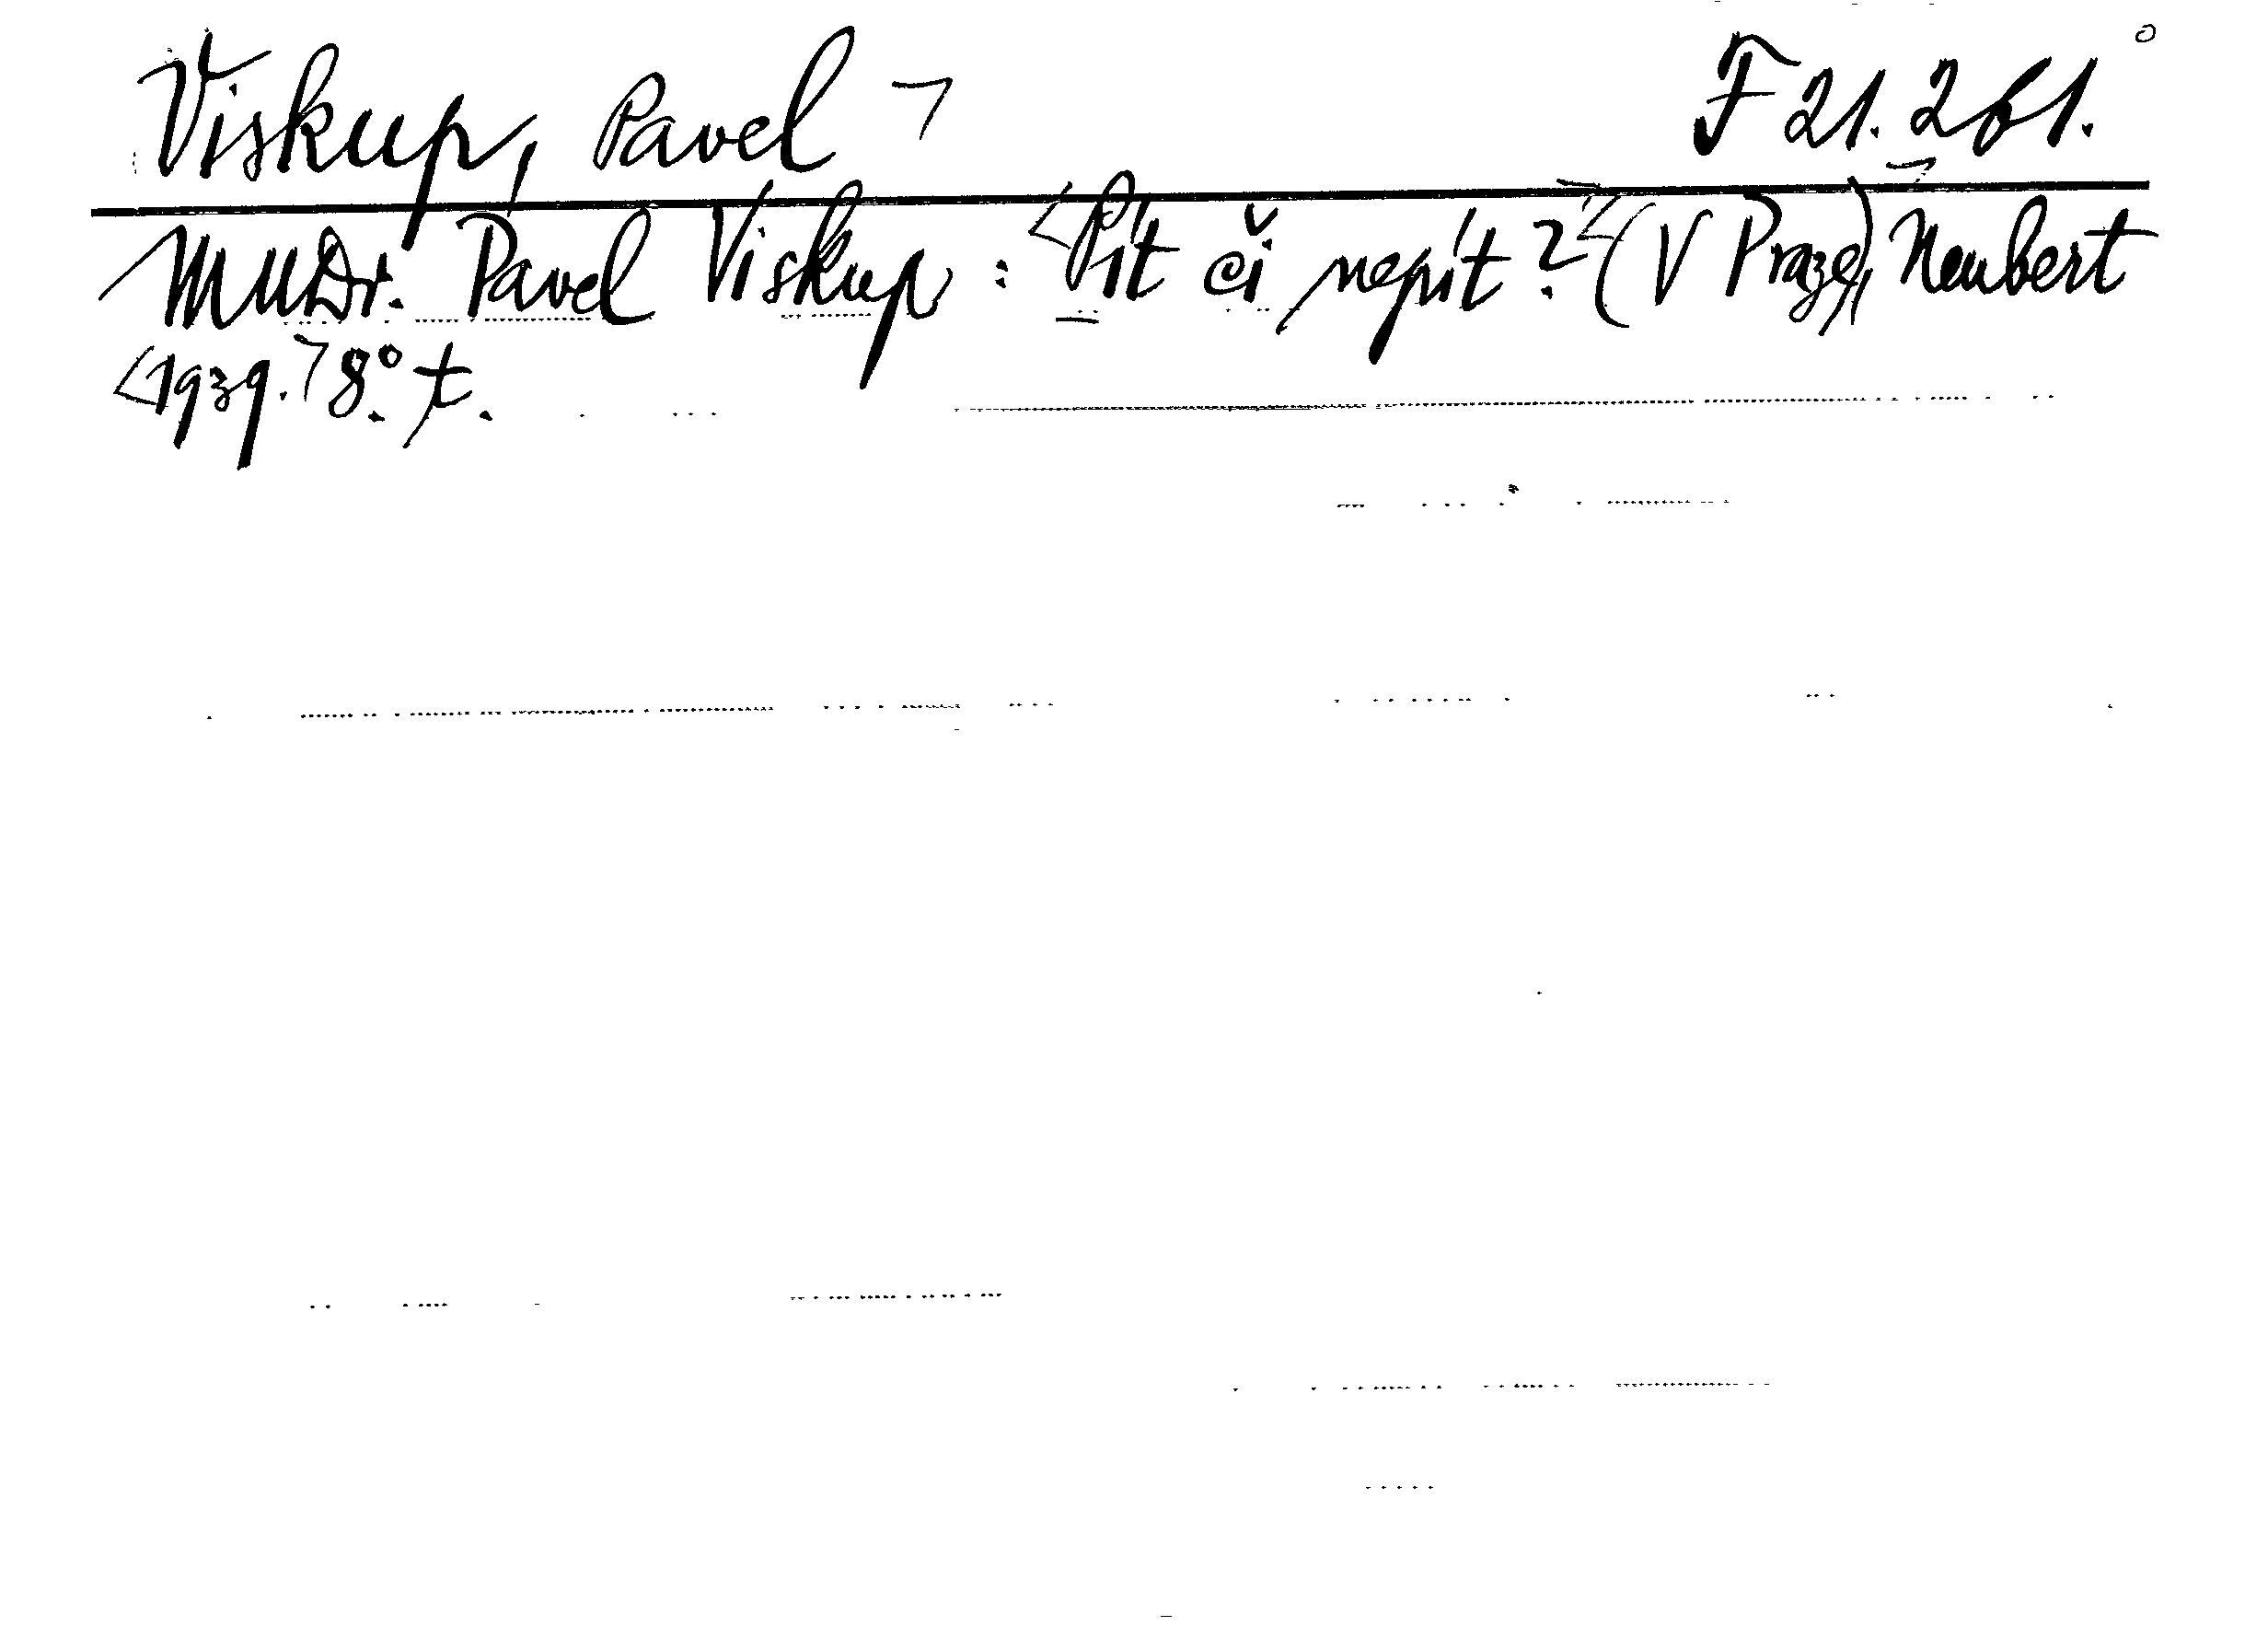 Viskup, Pavel F 21.261.
MUDr. Pavel Viskup: Pít či nepít? (V Praze), Neubert
1939. 8.° t.